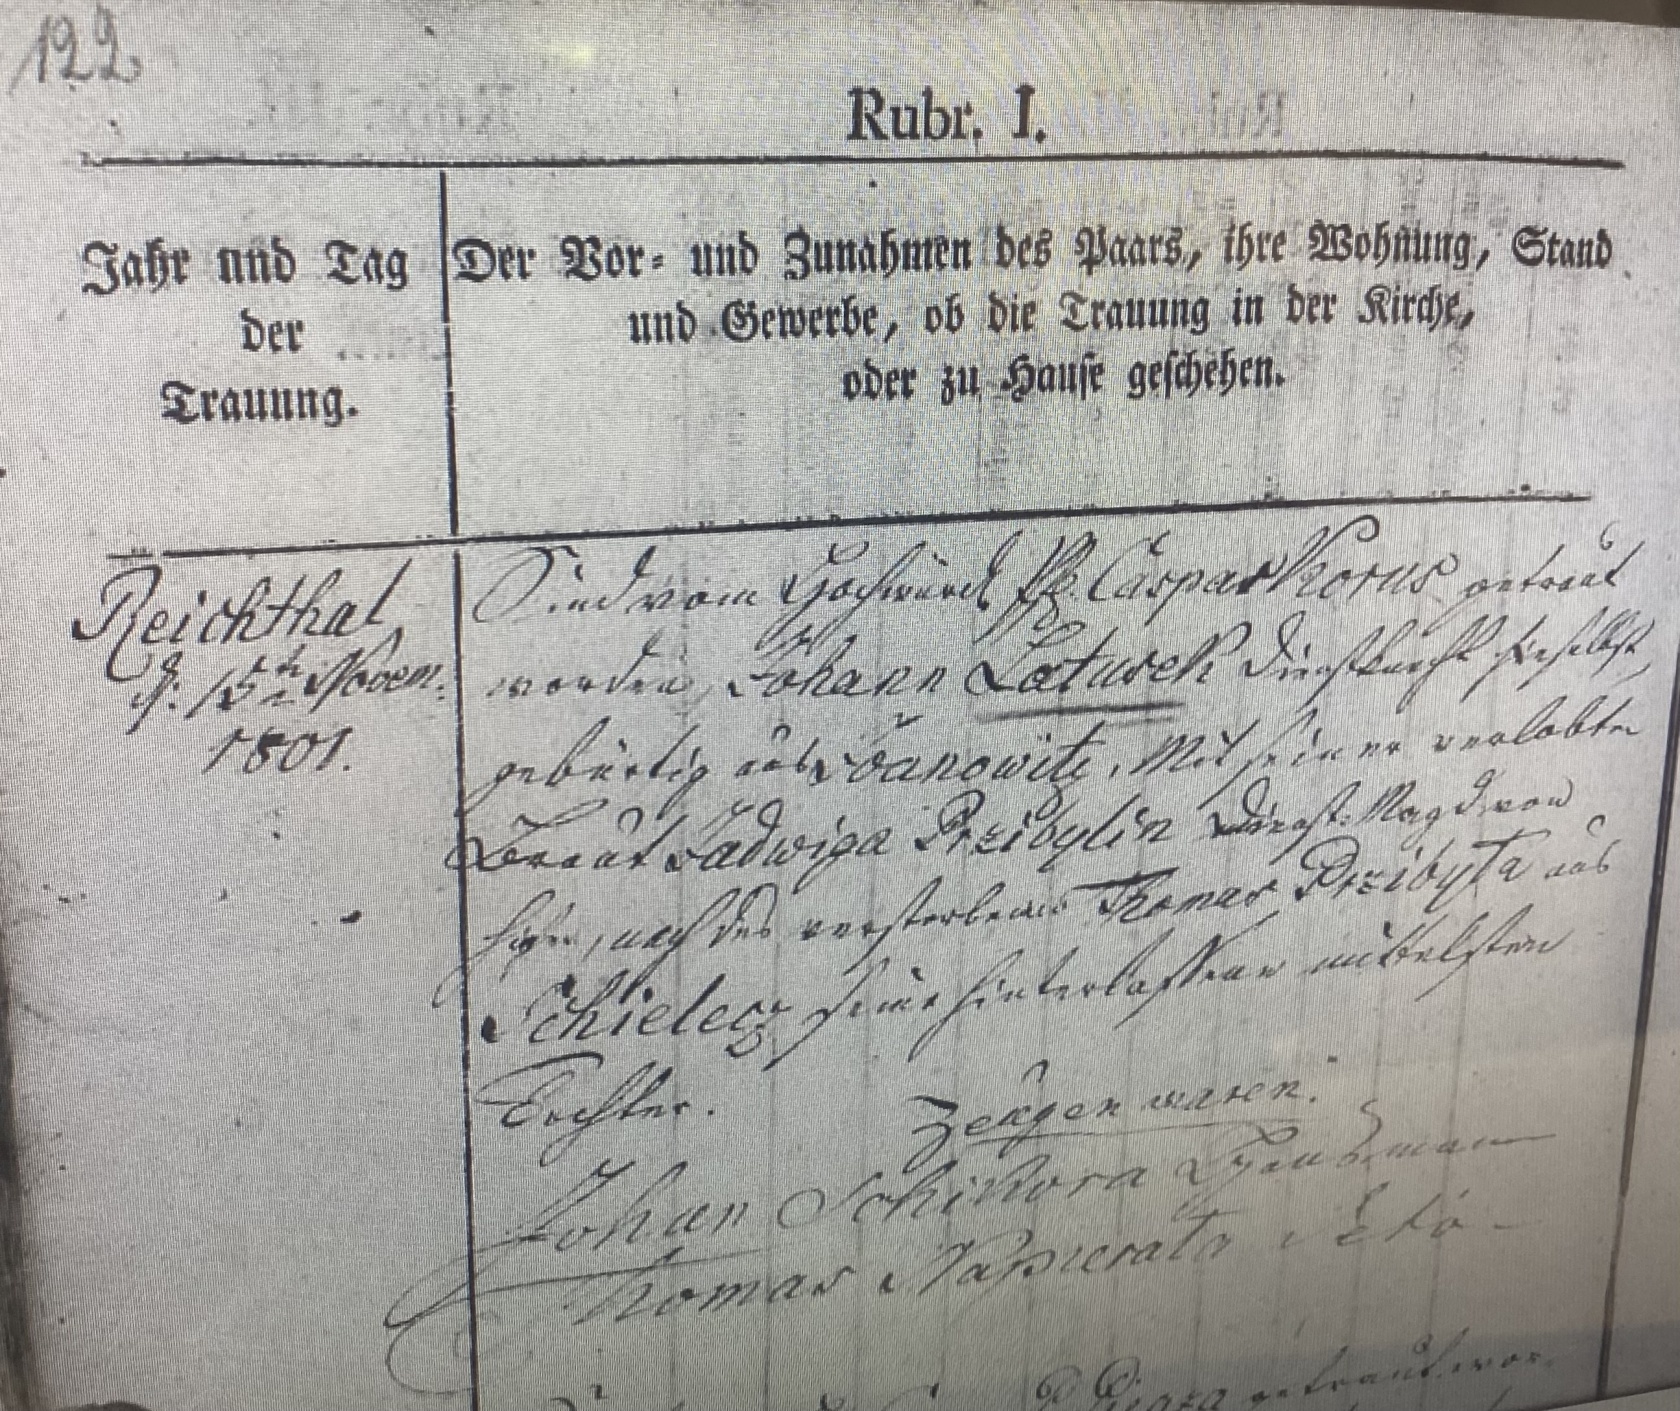 122.
Rubr. I.
Jahr und Tag
der
Trauung.
Der Vor- und Zunahmen des Paars, ihre Wohnung, Stand
und Gewerbe, ob die Trauung in der Kirche,
oder zu Hause geschehen.
Reichthal
d: 15te Novem:
1801.
Sind vom Hochwürd Caspar Korus getraut
worden, Johann Latusek Dienstknecht hieselbst
gebürtig aus Woanowitz, Mit seiner verlobten
Braut Hadwiga Przibylin Dienst-Magd von
hier, nach des verstorbenen Thomas Przibyla aus
Schielez seine hinterlassene mittelsten
Tochter.
Zeugen waren:
Johan Schikora Hausman
Thomas Napierala
getraut wor